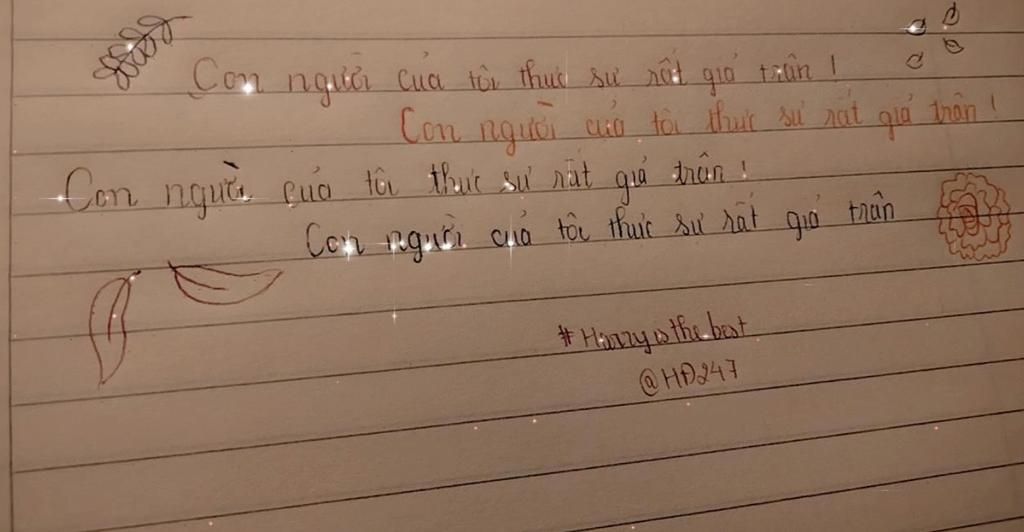 Con người của tôi thưc sư rất giá trân !
Con người của tôi thưc sư rất giá trân !
Con người của tôi thưc sư rất giá trân !
Con người của tôi thưc sư rất giá trân
#Harryisthe.best
@HĐ247